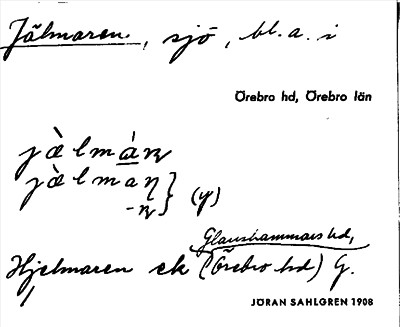 Jälmaren, sjö, bl. a. i
Örebro hd, Örebro län
jæ̀lmán
jæ̀lman
-n } (y)
Glanshammars hd,
Hjelmaren ek (Örebro hd) G.
JÖRAN SAHLGREN 1908